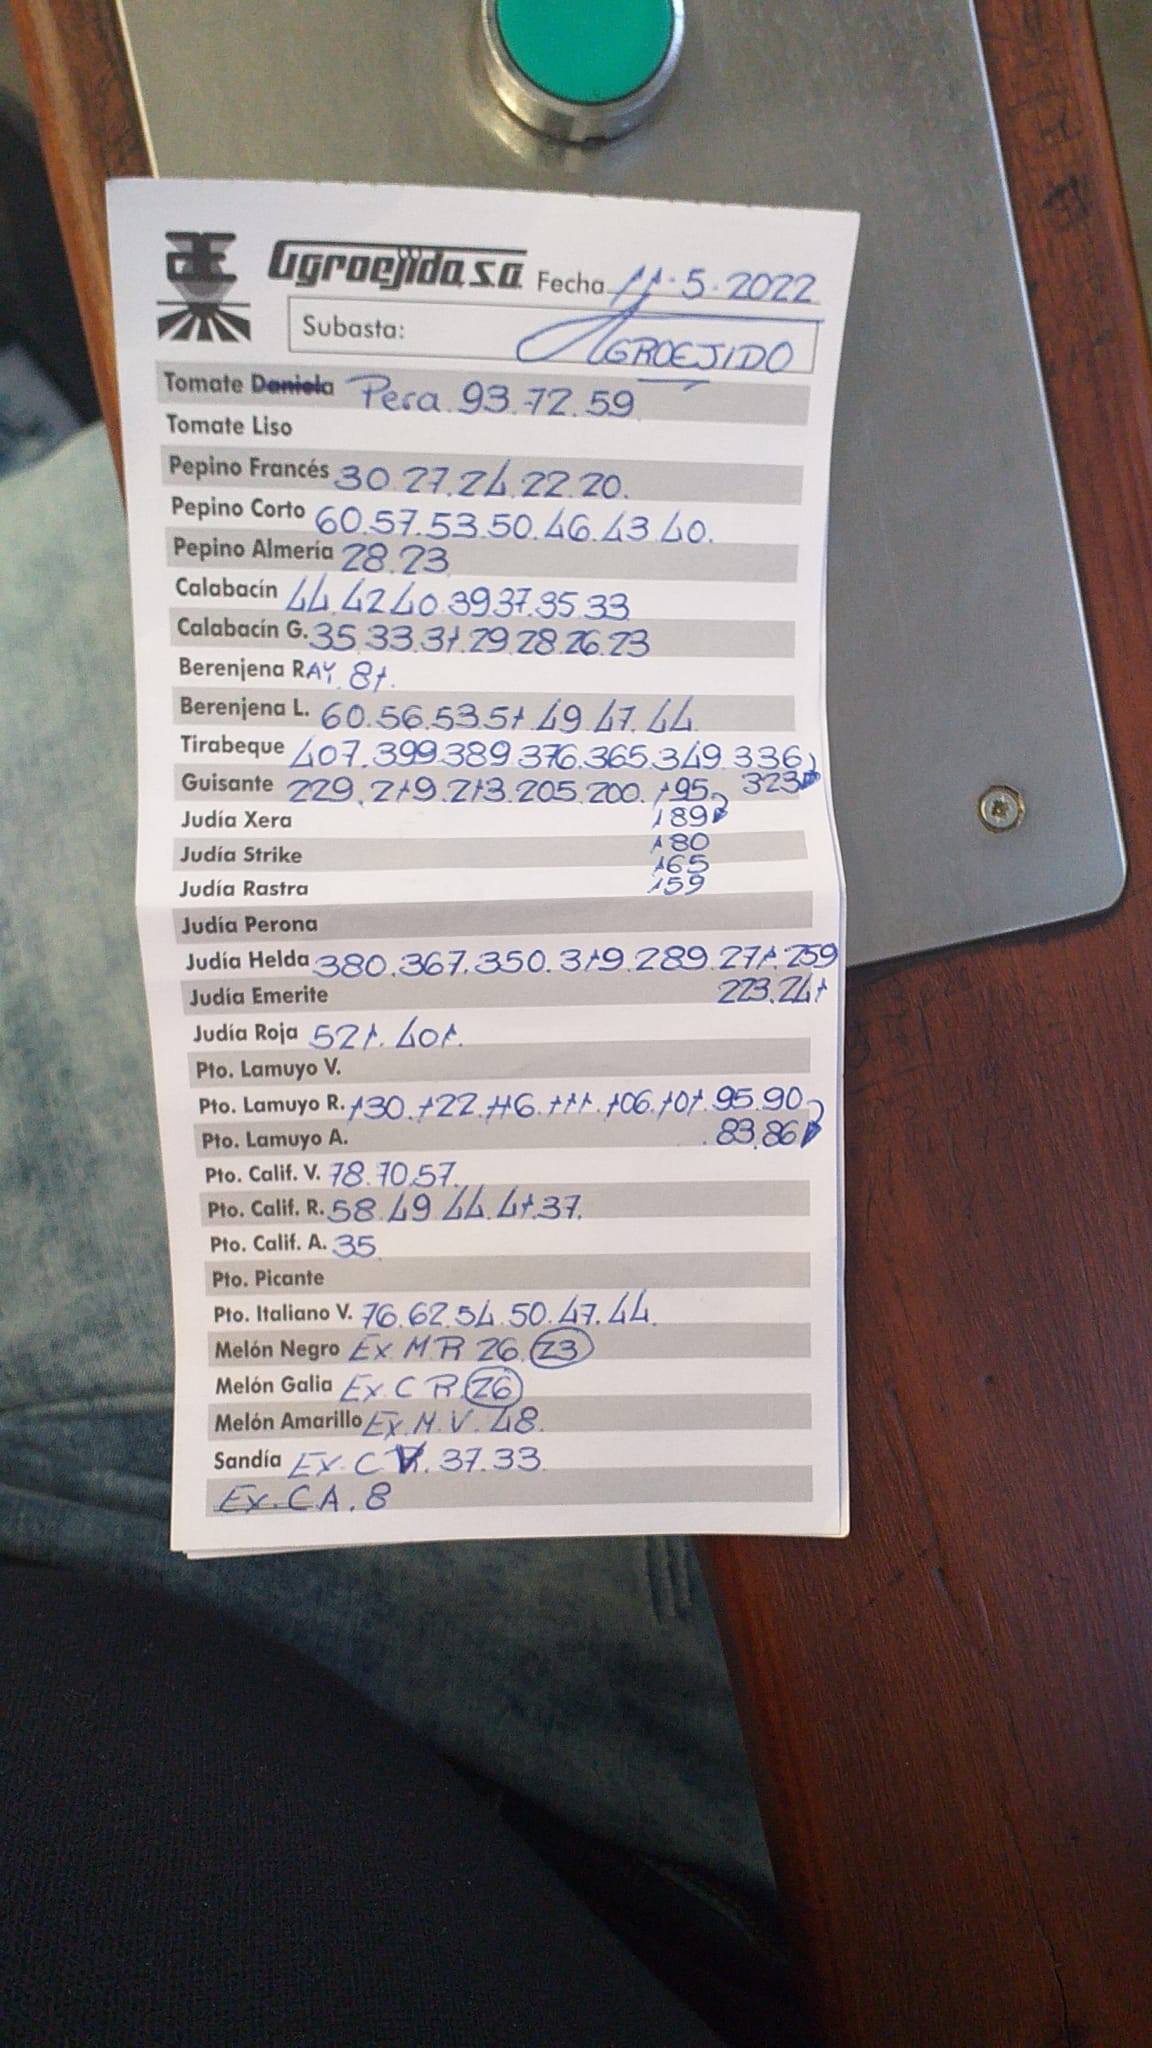 Agroejido, s.a. Fecha 11.5.2022
Subasta: AGROEJIDO
Tomate Daniela Pera 93.72.59
Tomate Liso
Pepino Francés 30.27.24.22.20.
Pepino Corto 60.57.53.50.46.43.40.
Pepino Almería 28.23
Calabacín 44.42.40.39.37.35.33
Calabacín G. 35.33.31.29.28.26.23
Berenjena RAY. 81.
Berenjena L. 60.56.53.51.49.47.44
Tirabeque 407.399.389.376.365.349.336
323
Guisante 229.219.213.205.200.195
Judía Xera 189
Judía Strike 180
165
Judía Rastra 159
Judía Perona
Judía Helda 380.367.350.319.289.271.259
Judía Emerite 223.241
Judía Roja 521.401.
Pto. Lamuyo V.
Pto. Lamuyo R. 130.122.116.111.106.101.95.90
Pto. Lamuyo A. 83.86
Pto. Calif. V. 78.70.57.
Pto. Calif. R. 58.49.44.41.37.
Pto. Calif. A. 35
Pto. Picante
Pto. Italiano V. 76.62.54.50.47.44.
Melón Negro Ex M R 26.23
Melón Galia Ex. C R. 26
Melón Amarillo Ex. M. V. 48.
Sandía Ex. C V. 37.33
Ex. C A. 8